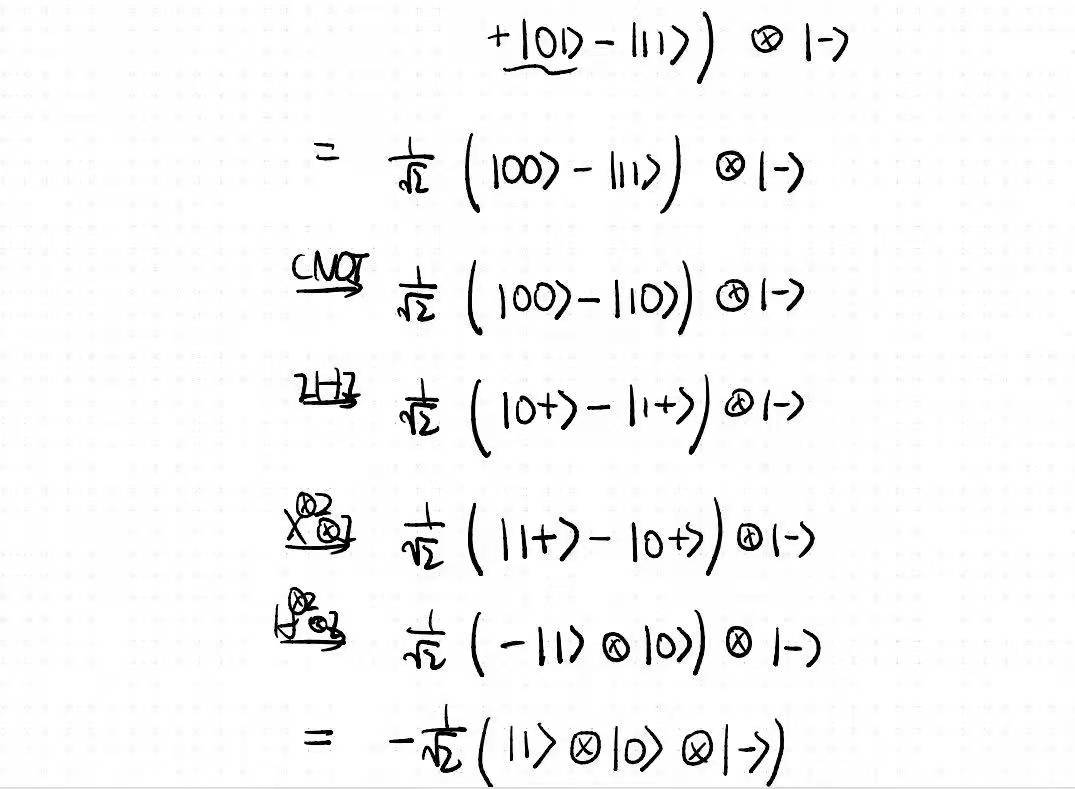 +|01⟩ - |11⟩) ⊗ |-⟩
= 1/√2 (|00⟩ - |11⟩) ⊗ |-⟩
CNOT 1/√2 (|00⟩ - |10⟩) ⊗ |-⟩
IHI 1/√2 (|0+⟩ - |1+⟩) ⊗ |-⟩
X^⊗2 ⊗I 1/√2 (|1+⟩ - |0+⟩) ⊗ |-⟩
H^⊗2 ⊗I 1/√2 (-|1⟩ ⊗ |0⟩) ⊗ |-⟩
= -1/√2 (|1⟩ ⊗ |0⟩ ⊗ |-⟩)